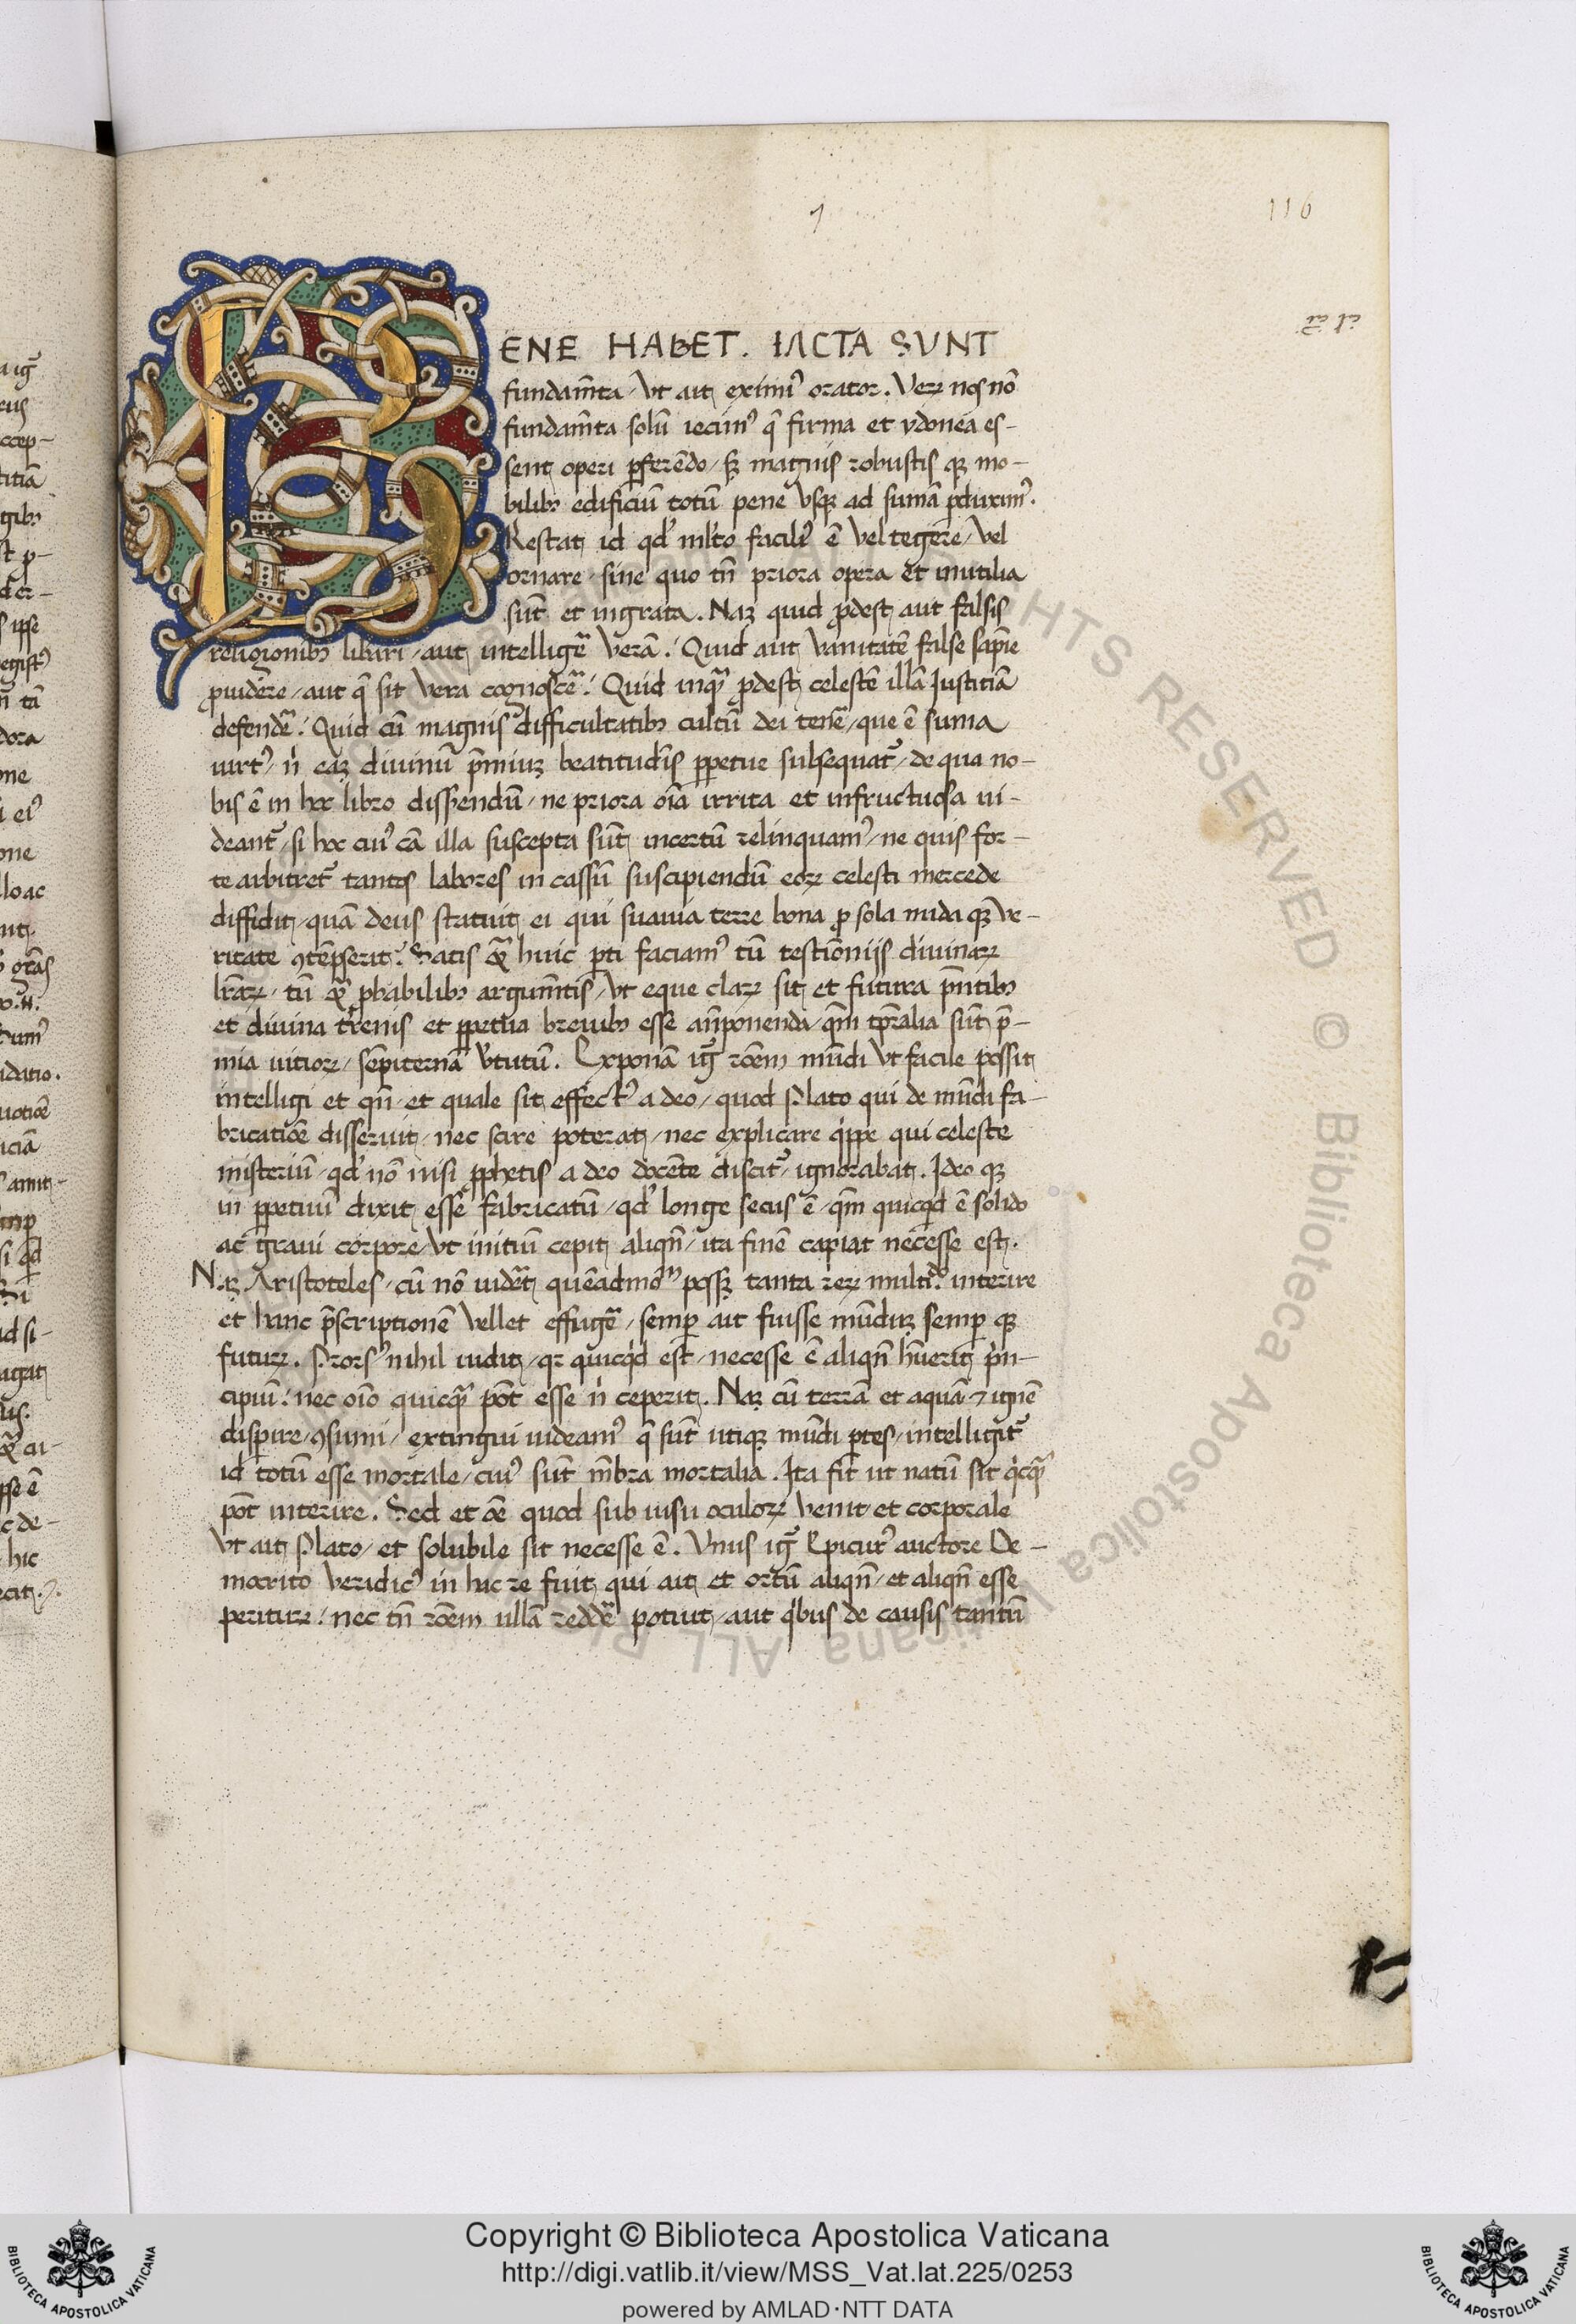 116
BENE HABET. IACTA SUNT
fundam̄ta / vt ait eximiꝰ orator. Veꝝ nos nō
fundam̄ta solū iecimꝰ q̄ firma et ydonea es-
sent operi ꝑferēdo / sꝫ magnis robustis qꝫ mo-
bilibꝫ edificiū totū pene vsqꝫ ad sumā ꝑduximꝰ.
Restat id qd' ml'to faciliꝰ ē vel tegere / vel
ornare / sine quo tn̄ priora opera et inutilia
sūt et ingrata. Naꝫ quid ꝓdest aut falsis
religionibꝫ libari / aut intelligẽ verā? Quid aut vanitatē false sapīe
ꝓuidere / aut q̄ sit vera cognoscẽ? Quid inqᷓ ꝓdest celestē illā Iustitiā
defendẽ? Quid cū magnis difficultatibꝫ cultū dei tenẽ / que ē suma
uirtꝰ / nͥ eaꝫ diuinū p̄miuꝫ beatitudīs ꝑpetue subsequat᷑ / de qua no-
bis ē in hoc libro disserendū / ne priora oīa irrita et infructuosa ui-
deant᷑ / si hoc cuiꝰ cā illa suscepta sūt incertū relinquamꝰ / ne quis for-
te arbitret᷑ tantos labores in cassū suscipiendū eoꝝ celesti mercede
diffidit / quā deus statuit ei qui suauia terre bona ꝓ sola nuda qꝫ ve-
ritate ꝯtēpserit? Satis qᷓ huic ꝑti faciamꝰ tū testimōijs diuinaꝝ
lrāꝝ / tū qᷓ ꝓbabilibꝫ argum̄tis / vt eque claꝝ sit et futura p̄ntibꝫ
et diuina t'renis et ꝑpetua breuibꝫ esse an̄ponenda / qm̄ tꝑalia sūt p̄-
mia uitioꝝ / sēpiternā v'tutū. Exponā ig᷑ rōem mūdi vt facile possit
intelligi et qn̄ et quale sit effectꝰ a deo / quod Plato qui de mūdi fa-
bricatiōe disseruit / nec scire poterat / nec explicare qͥppe qui celeste
misteriū / qd' nō nisi ꝓphetis a deo docente discit᷑ / ignorabat. Ideo qꝫ
in ꝑpetuū dixit esse fabricatū / qd' longe secus ē / qm̄ quicqͥd ē solido
ac graui corpore / vt initiū cepit aliqn̄ / ita finē capiat necesse est.
Naꝫ Aristoteles / cū nō uidẽt quēadmōͫ possꝫ tanta reꝝ multi.ͩᵒ interire
et hanc p̄scriptionē vellet effugẽ / semꝑ ait fuisse mūduꝫ semꝑ qꝫ
futuꝝ. Prorsꝰ nihil uidit / qꝛ quicqͥd est / necesse ē aliqn̄ hūerit pͥn-
cipiū: nec oīo quicqᷓ pōt esse nͥ ceperit. Naꝫ cū terrā et aquā ⁊ ignē
disꝑire / ꝯsumi / extingui uideamꝰ q̄ sūt utiqꝫ mūdi ꝑtes / intelligit᷑
id totū esse mortale / cuiꝰ sūt mēbra mortalia. Ita fit ut natū sit qͥcqᷓ
pōt interire. Sed et ōe quod sub uisu oculoꝝ venit et corporale
vt ait Plato / et solubile sit necesse ē. Vnus ig᷑ Epicurꝰ auctore De-
mocrito veridicꝰ in hac re fuit qui ait et ortū aliqn̄ / et aliqn̄ esse
perituꝝ: nec tn̄ rōem ullā reddẽ potuit / aut qͥbus de causis tantū
Copyright © Biblioteca Apostolica Vaticana
http://digi.vatlib.it/view/MSS_Vat.lat.225/0253
powered by AMLAD·NTT DATA
BIBLIOTECA APOSTOLICA VATICANA
BIBLIOTECA APOSTOLICA VATICANA